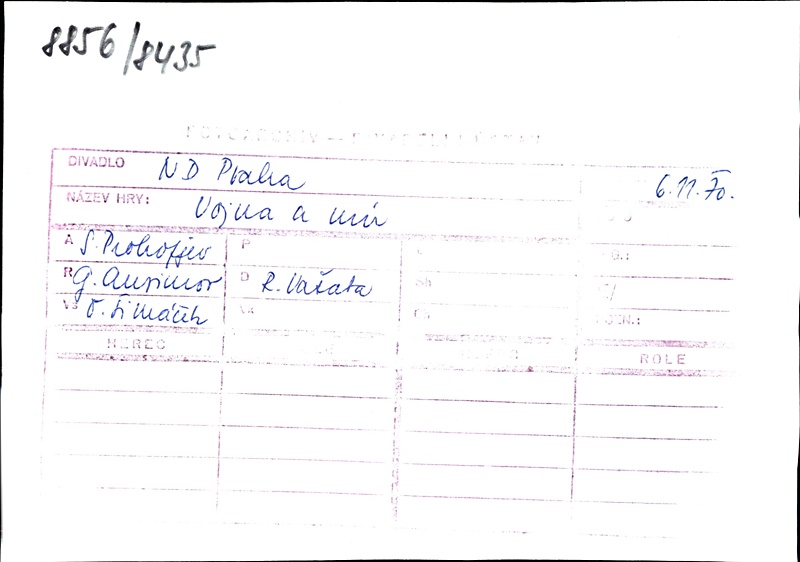 8856/8435
DIVADLO ND Praha 6.11.70.
NÁZEV HRY: Vojna a mír
A S. Prokofjev P
R G. Ansimov D R. Vašata Sh
O. Šimáček
HEREC ROLE